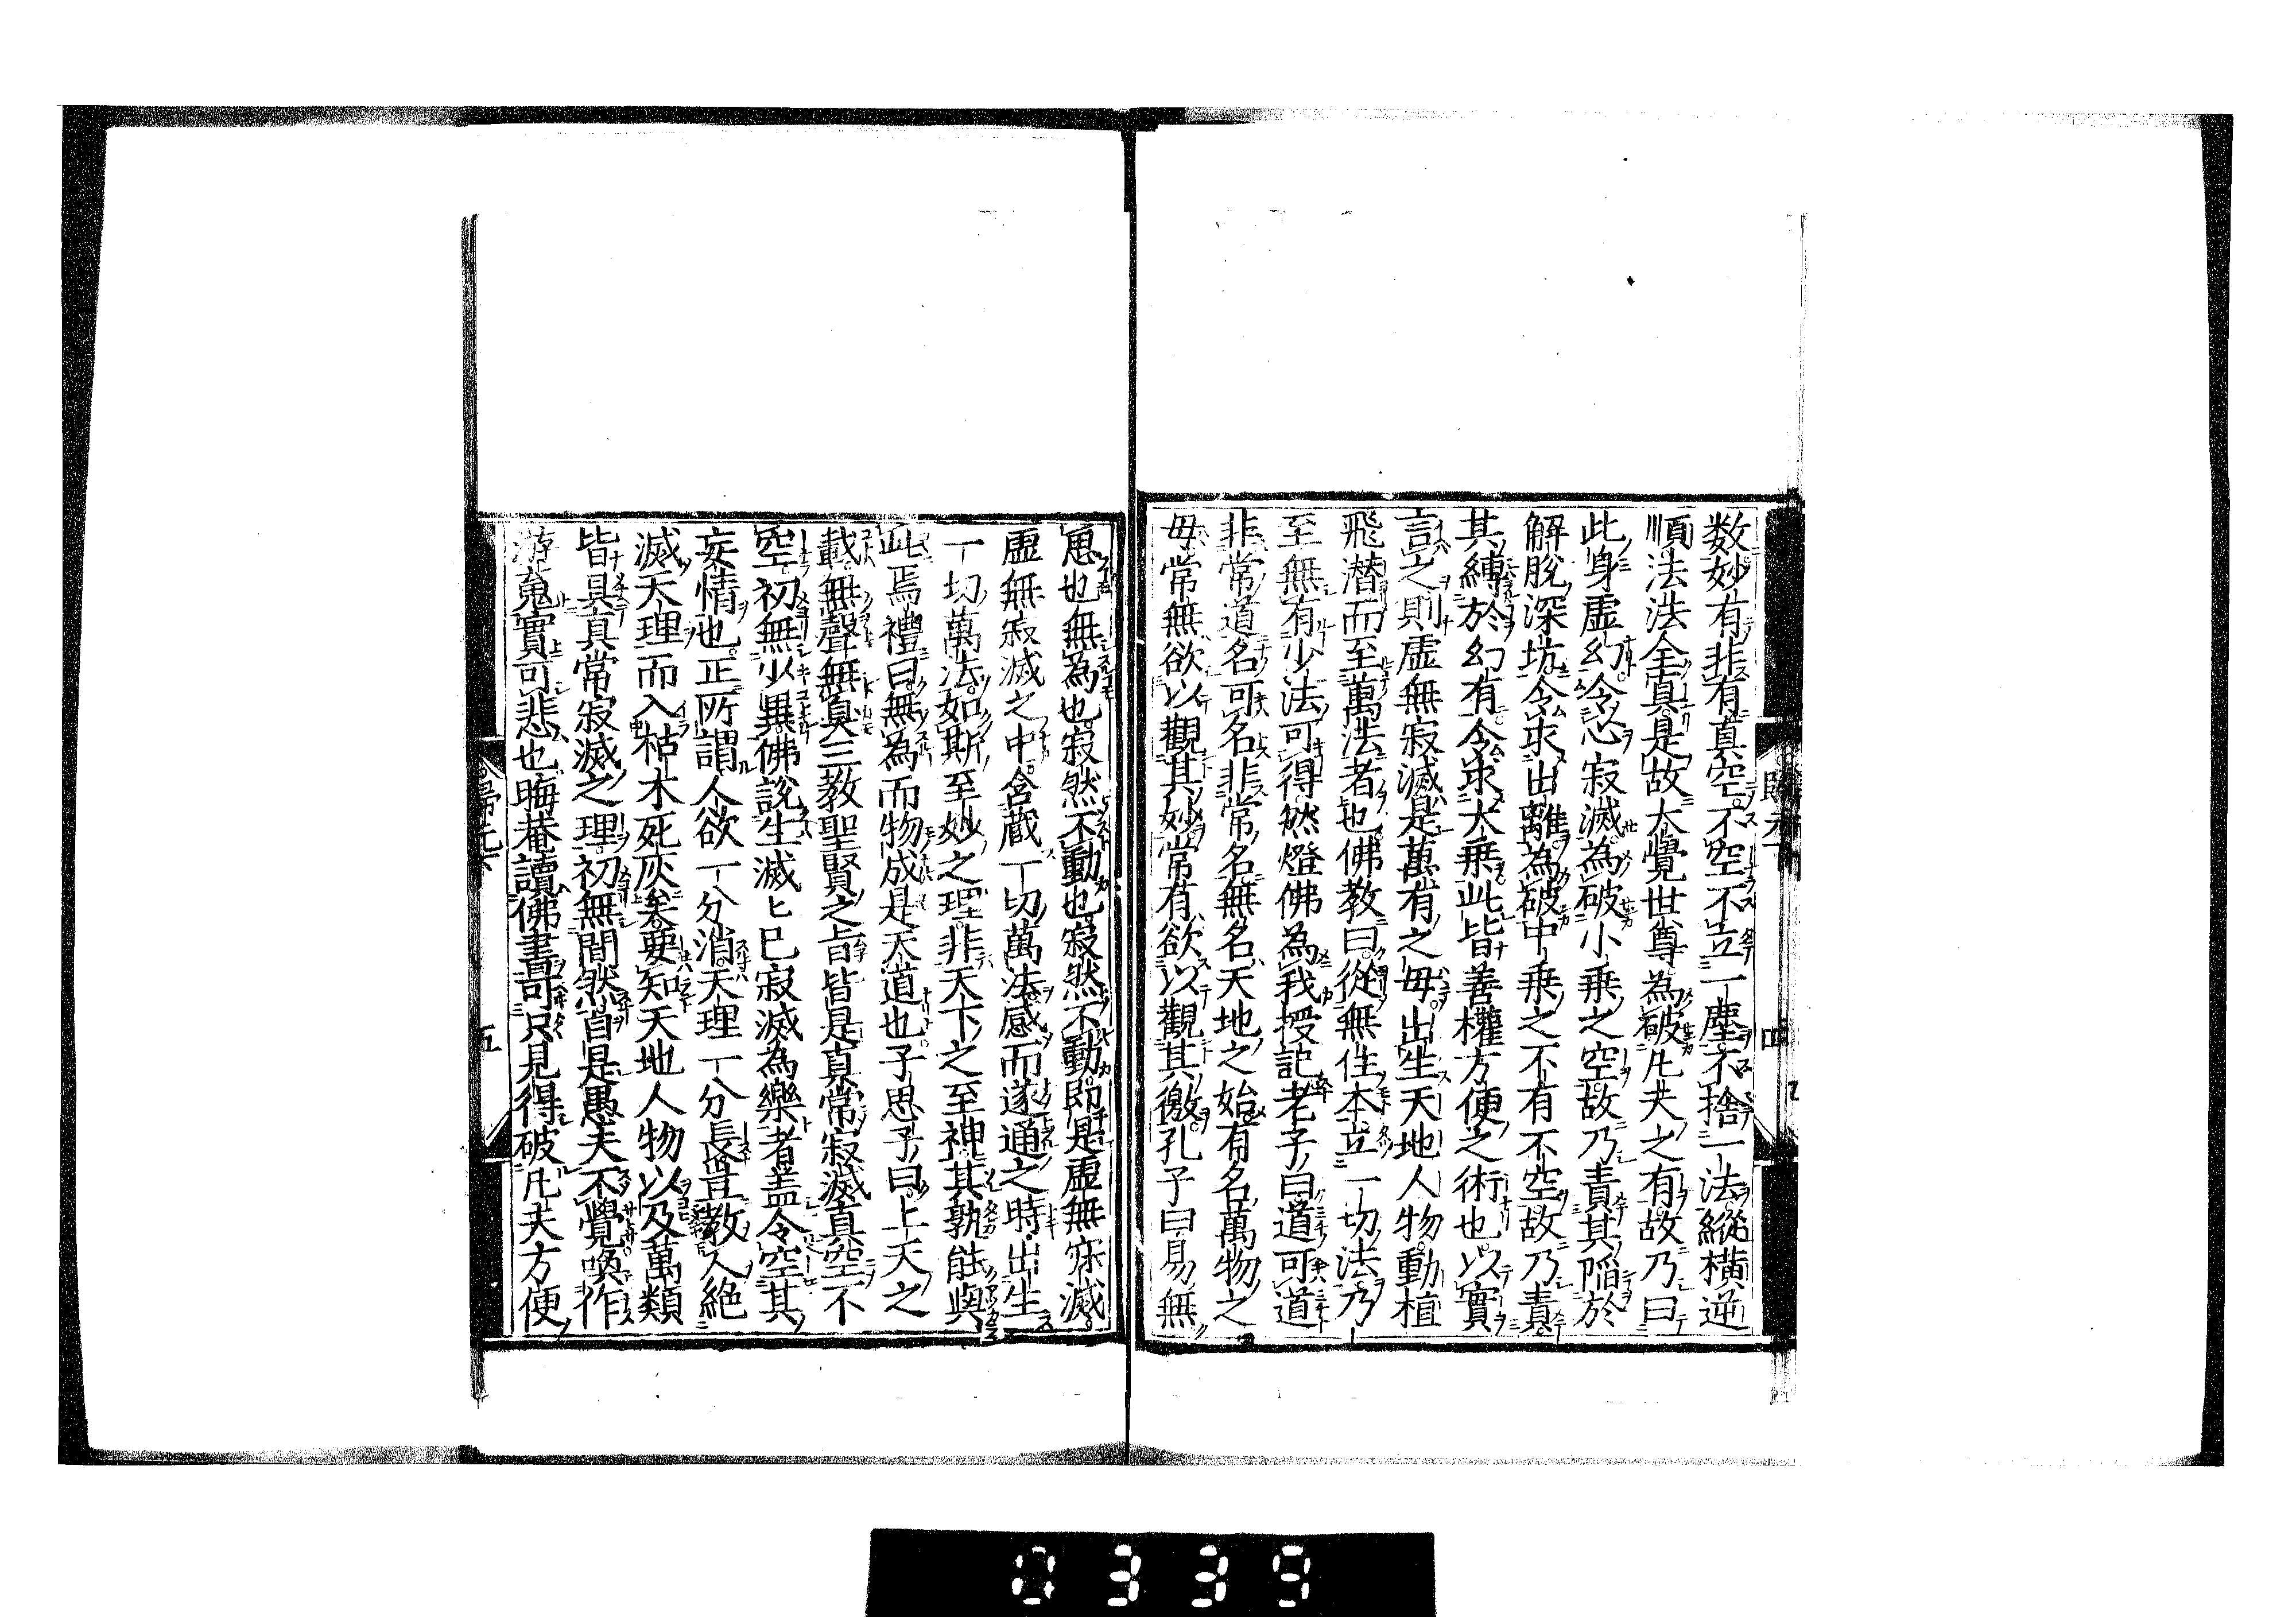 数妙有非有真空不空不立一塵不捨一法縱橫逆
順法法全真是故大覺世尊為破凡夫之有故乃曰
此身虛幻令心寂滅為破小乗之空故乃責其陷於
解脫深坑令求出離為破中乗之不有不空故乃責
其縛於幻有令求大乗此皆善權方便之術也以實
言之則虛無寂滅是萬有之毋出生天地人物動植
飛潜而至萬法者也佛教曰從無住本立一切法乃
至無有少法可得然燈佛為我授記老子曰道可道
非常道名可名非常名無名天地之始有名萬物之
毋常無欲以觀其妙常有欲以觀其徼孔子曰易無
思也無為也寂然不動也寂然不動即是虛無寂滅
虛無寂滅之中含蔵一切萬法感而遂通之時出生
一切萬法如斯至妙之理非天下之至神其孰能與
此焉禮曰無為而物成是天道也子思子曰上天之
載無聲無臭三教聖賢之旨皆是真常寂滅真空不
空初無少異佛說生滅匕已寂滅為樂者盖令空其
妄情也正所謂人欲一分消天理一分長豈教人絶
滅天理而入枯木死灰矣要知天地人物以及萬類
皆具真常寂滅之理初無間然自是愚夫不覺喚作
游䰟實可悲也晦菴讀佛書哥只見得破凡夫方便
歸元下
五
四
0339